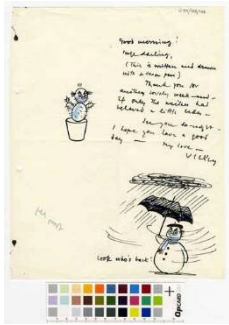 Good morning!
Inge darling,
(This is written and drawn
with a [...] pen)
Thank you for
another lovely week-end -
if only the weather had
behaved a little better -
See you to-night.
I hope you have a good
day - My love -
Look who's back!